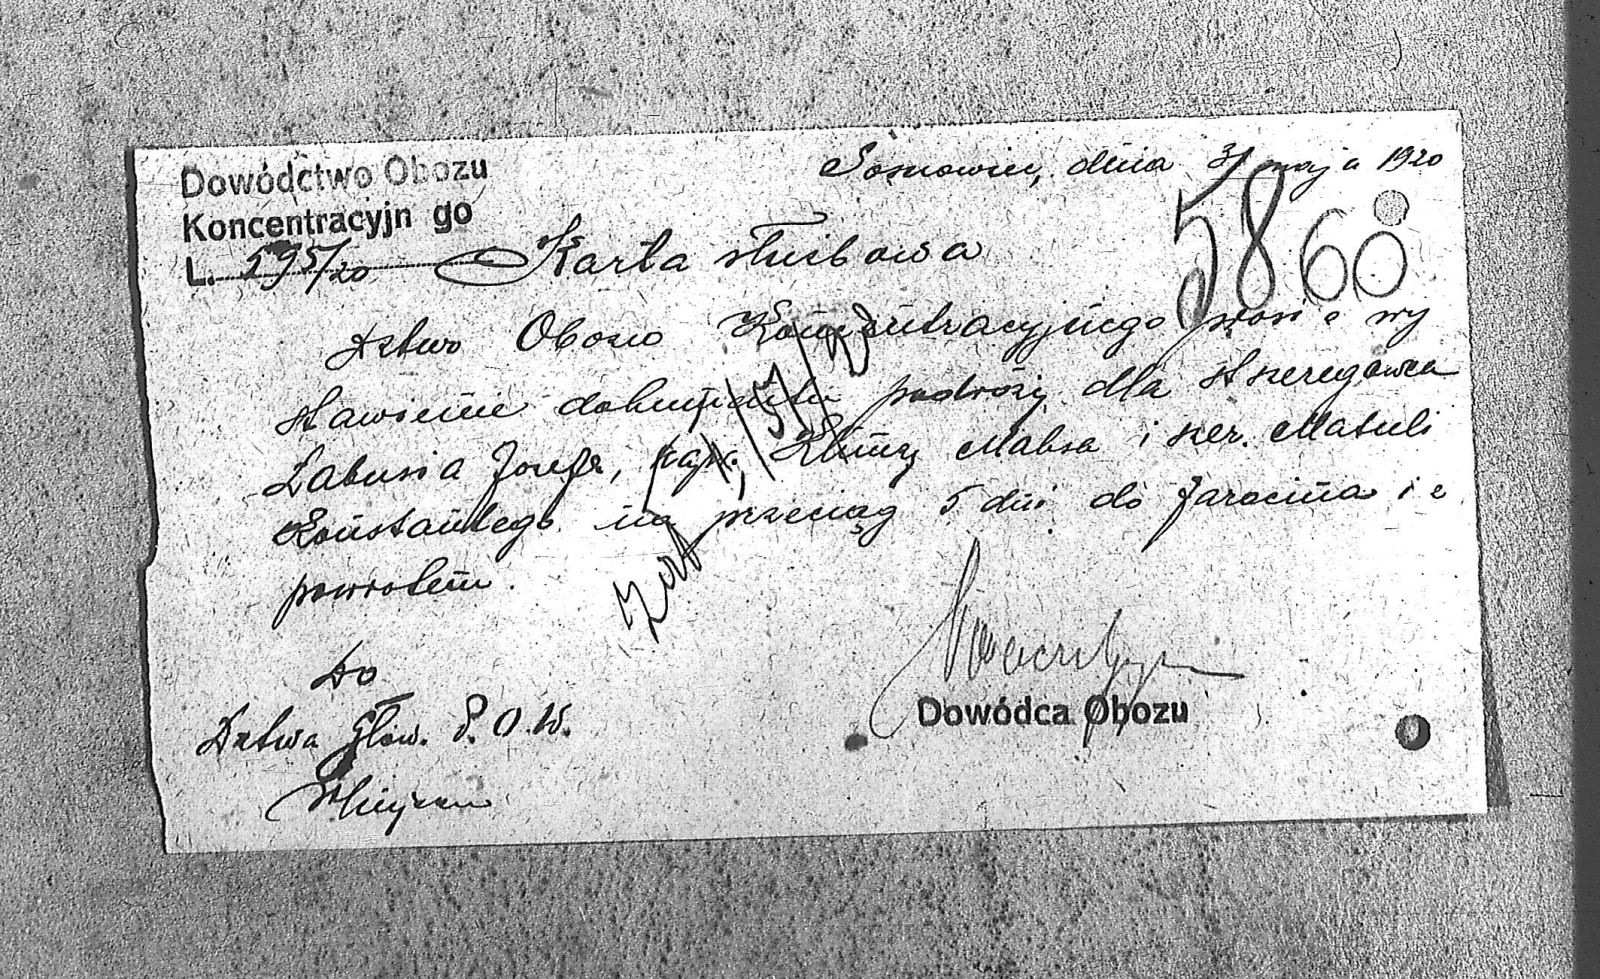 Dowództwo Obozu
Koncentracyjn go
L. 595/20
Sosnowiec, dnia 31 maja 1920
5860
Karta służbowa
Dztwo Obozu Koncentracyjnego prosi o wy
stawienie dokumentu podróży dla st szeregowca
Labusia Józefa, kapr. Klimy Maksa i szer. Matuli
Konstantego na przeciąg 5 dni do Jarocina i z
powrotem.
Do
Dztwa Głów. P.O.W.
W miejscu
Dowódca Obozu